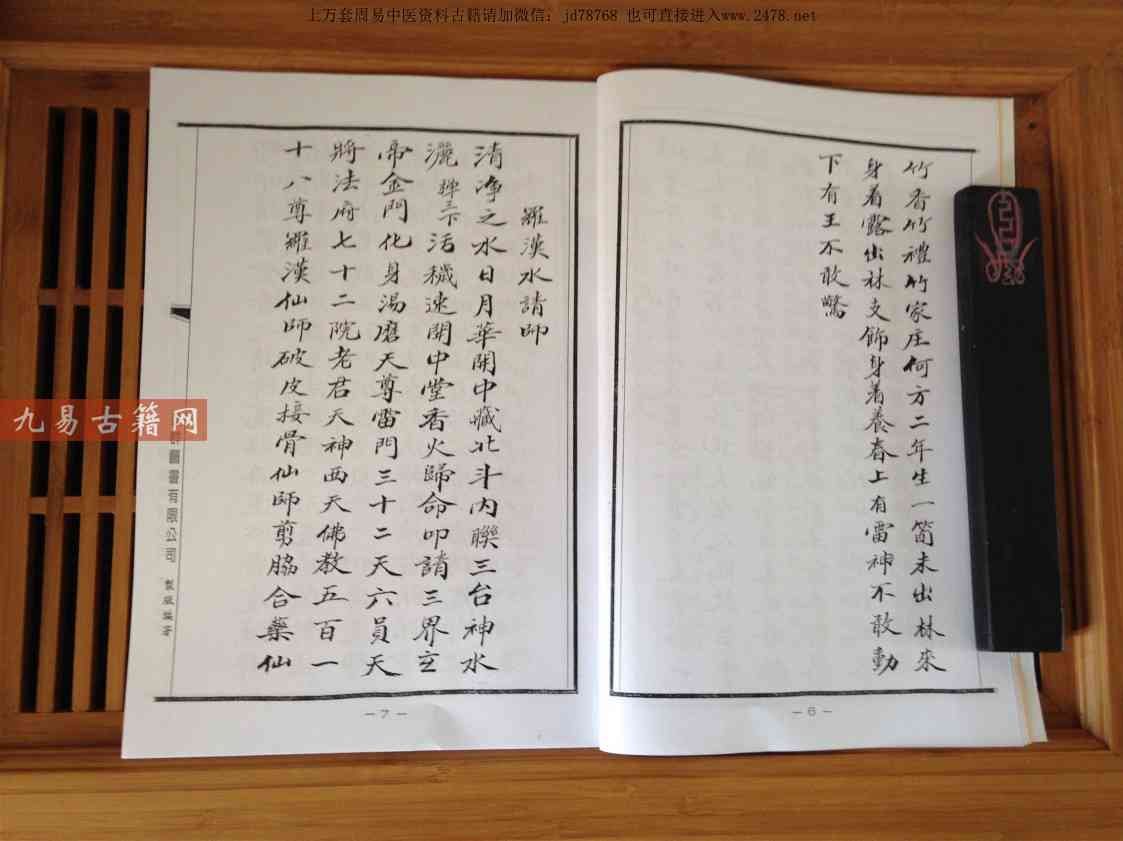 上万套周易中医资料古籍请加微信: jd78768 也可直接进入www.2478.net
竹香竹禮竹家庄何方二年生一筒未出林來
身着露出林支飾身着養春上有雷神不敢動
下有王不敢驚
-6-
羅漢水請師
清淨之水日月華開中臧北斗內聯三台神水
灑 穢速開中堂香火歸命叩請三界主
帝金門化身湯磨天尊雷門三十二天六員天
將法府七十二院老君天神西天佛教五百一
十八尊羅漢仙師破皮接骨仙師剪脇合藥仙
-7-
圖書有限公司 製版編著
九易古籍网